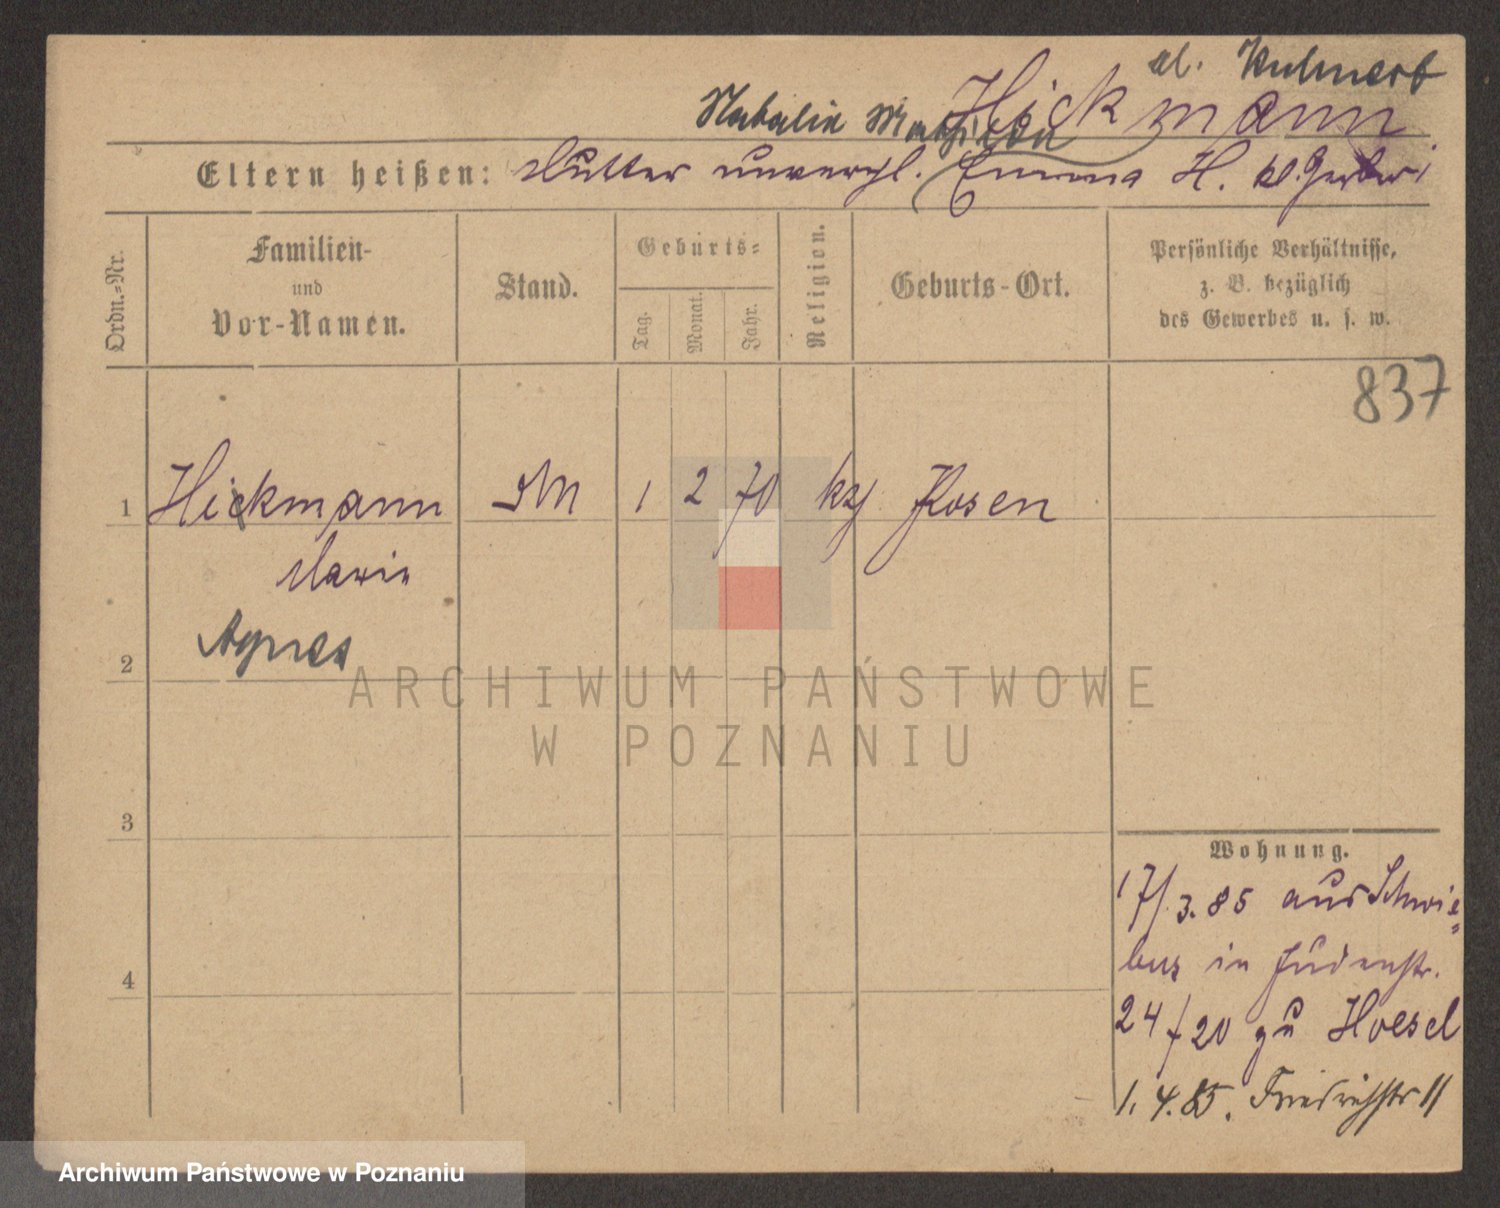 Hickmann
Eltern heißen: Mutter unverehl. Emma H.
Ordn.-Nr.
Familien-
und
Vor-Namen.
Stand.
Geburts-
Tag.
Monat.
Jahr.
Religion.
Geburts-Ort.
Persönliche Verhältnisse,
z. B. bezüglich
des Gewerbes u. s. w.
837
1 Hickmann M 1 2 70 Posen
Marie
Agnes
2
ARCHIWUM PAŃSTWOWE
W POZNANIU
3
4
Wohnung.
17/3.85 aus Schwie=
bus in Judenstr.
24/20 zu Hoesel
1.4.85. Friedrichstr 11
Archiwum Państwowe w Poznaniu